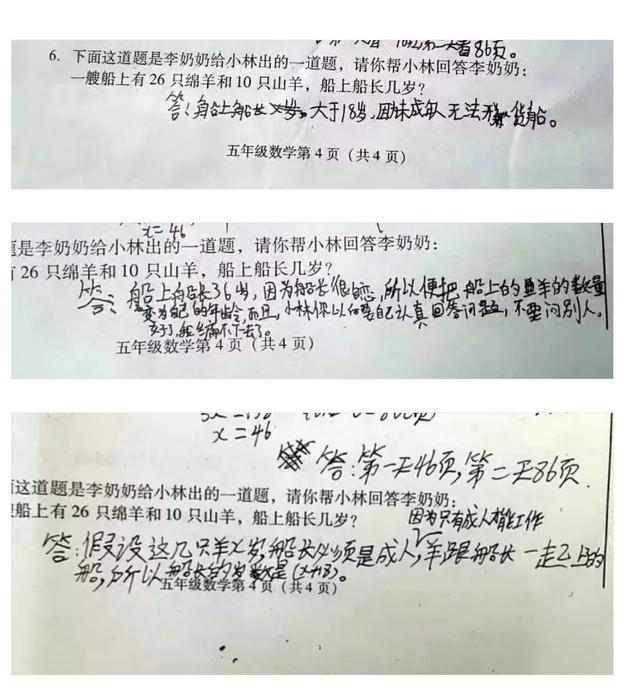 看86页。
6. 下面这道题是李奶奶给小林出的一道题，请你帮小林回答李奶奶：
一艘船上有 26 只绵羊和 10 只山羊，船上船长几岁？
答：船上船长 大于18岁，因为未成年人无法 货船。
五年级数学第 4 页（共 4 页）
x=46
是李奶奶给小林出的一道题，请你帮小林回答李奶奶：
26 只绵羊和 10 只山羊，船上船长几岁？
答：船上船长36岁，因为船长很 ，所以便把船上的 羊的数量
变为自己的年龄，而且，小林你以后要自己认真回答问题，不要问别人。
了，我 不下去了。
五年级数学第 4 页（共 4 页）
x=46
答：第一天46页，第二天86页.
这道题是李奶奶给小林出的一道题，请你帮小林回答李奶奶：
船上有 26 只绵羊和 10 只山羊，船上船长几岁？
因为只有成人才能工作
答：假设这几只羊x岁，船长必须是成人，羊跟船长一起上的
船，所以船长的岁数是(x+18)。
五年级数学第 4 页（共 4 页）